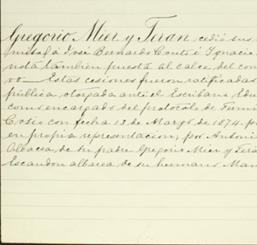 Gregorio Mier y Teran cedió sus
mismos á José Bernardo Couto é Ignacio
nota tambien puesta al calce del con
Estas cesiones fueron ratificadas
pública otorgada ante el Escribano Edu
como encargado del protocolo de Fermi
Cosio con fecha 13 de Marzo de 1874, p
en propia representacion, por Antonio
Albacea de su padre Gregorio Mier y Tera
Escandon albacea de su hermano Man